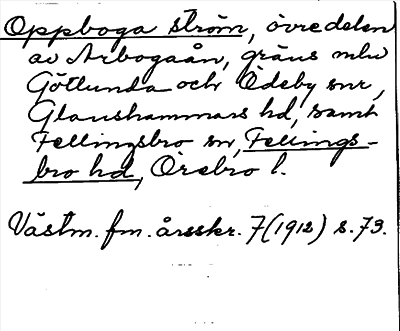 Oppboga ström, övre delen
av Arbogaån, gräns mln
Götlunda och Ödeby snr,
Glanshammars hd, samt
Fellingsbro sn, Fellings-
bro hd, Örebro l.
Västm. fm. årsskr. 7 (1912) s. 73.